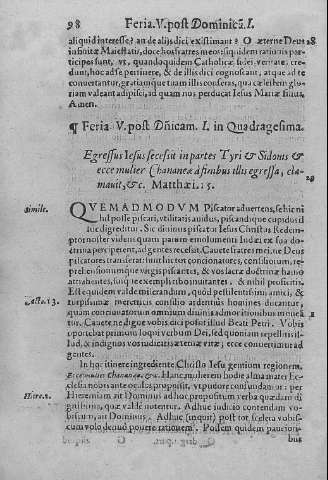 98 Feria.V.post Dominicã.I.
aliquid interesse? an de alijs dici existimant? O æterne Deus
infinitæ Maiestatis, doce hos fratres meos: siquidem rationis par-
ticipes sunt, vt, quandoquidem Catholicæ fidei veritatē, cre-
dunt, hoc ad se pertinere, & de illis dici cognoscant, atque ad te
conuertantur, gratiamque tuam illis conferas, qua cælestem glo-
riam valeant adipisci, ad quam nos perducat Iesus Mariæ filius.
Amen.
¶ Feria. V. post Dñicam. I. in Quadragesima.
Egressus Iesus secessit in partes Tyri & Sidonis &
ecce mulier Chananea à finibus illis egressa, cla-
mauit, &c. Matthæi. 15.
Simile.
QVEMADMODVM Piscator aduertens, se hic ni
hil posse piscari, vtilitatis auidus, piscandique cupidus il
luc digreditur. Sic diuinus piscator Iesus Christus Redem-
ptor noster videns quam parum emolumenti Iudæi ex sua do
ctrina perceperant, ad gentes recessit. Cauete fratres mei, ne Deus
piscatores transferat: hinc tot concionatores, consilio
rum, reprehensionumque virgis piscantes, & vos sacræ doctrinæ
attrahentes, suisque exemplis & nihil proficitis.
Est equidem valde mirandum, quod pestilentissimi amici, &
Acto. 13.
turpissimæ meretricis consilio ardentiùs homines ducantur,
quam concionatorum omnium diuinis admonitionibus moueã
tur. Cauete ne dignè vobis dici possit illud Beati Petri. Vobis
oportebat primum loqui verbum Dei, sed quoniam repellitis il-
lud, & indignos vos iudicatis æternæ vitæ, ecce conuertimur ad
gentes.
In hoc itinere ingrediente Christo Iesu gentium regionem.
Ecce mulier Chananea, &c. Hanc mulierem hodie alma mater Ec
clesia nobis ante oculos proposuit, vt pudore confundantur: per
Hiere. 2.
Hieremiam ait Dominus ad hoc propositum verba quædam di
gnissima, quæ valdè notentur. Adhuc iudicio contendam vo-
biscum, ait Dominus. Adhuc (inquit) post tot scelera vobis-
cum volo denuò ponere rationem. Possem quidem paucioris
bus